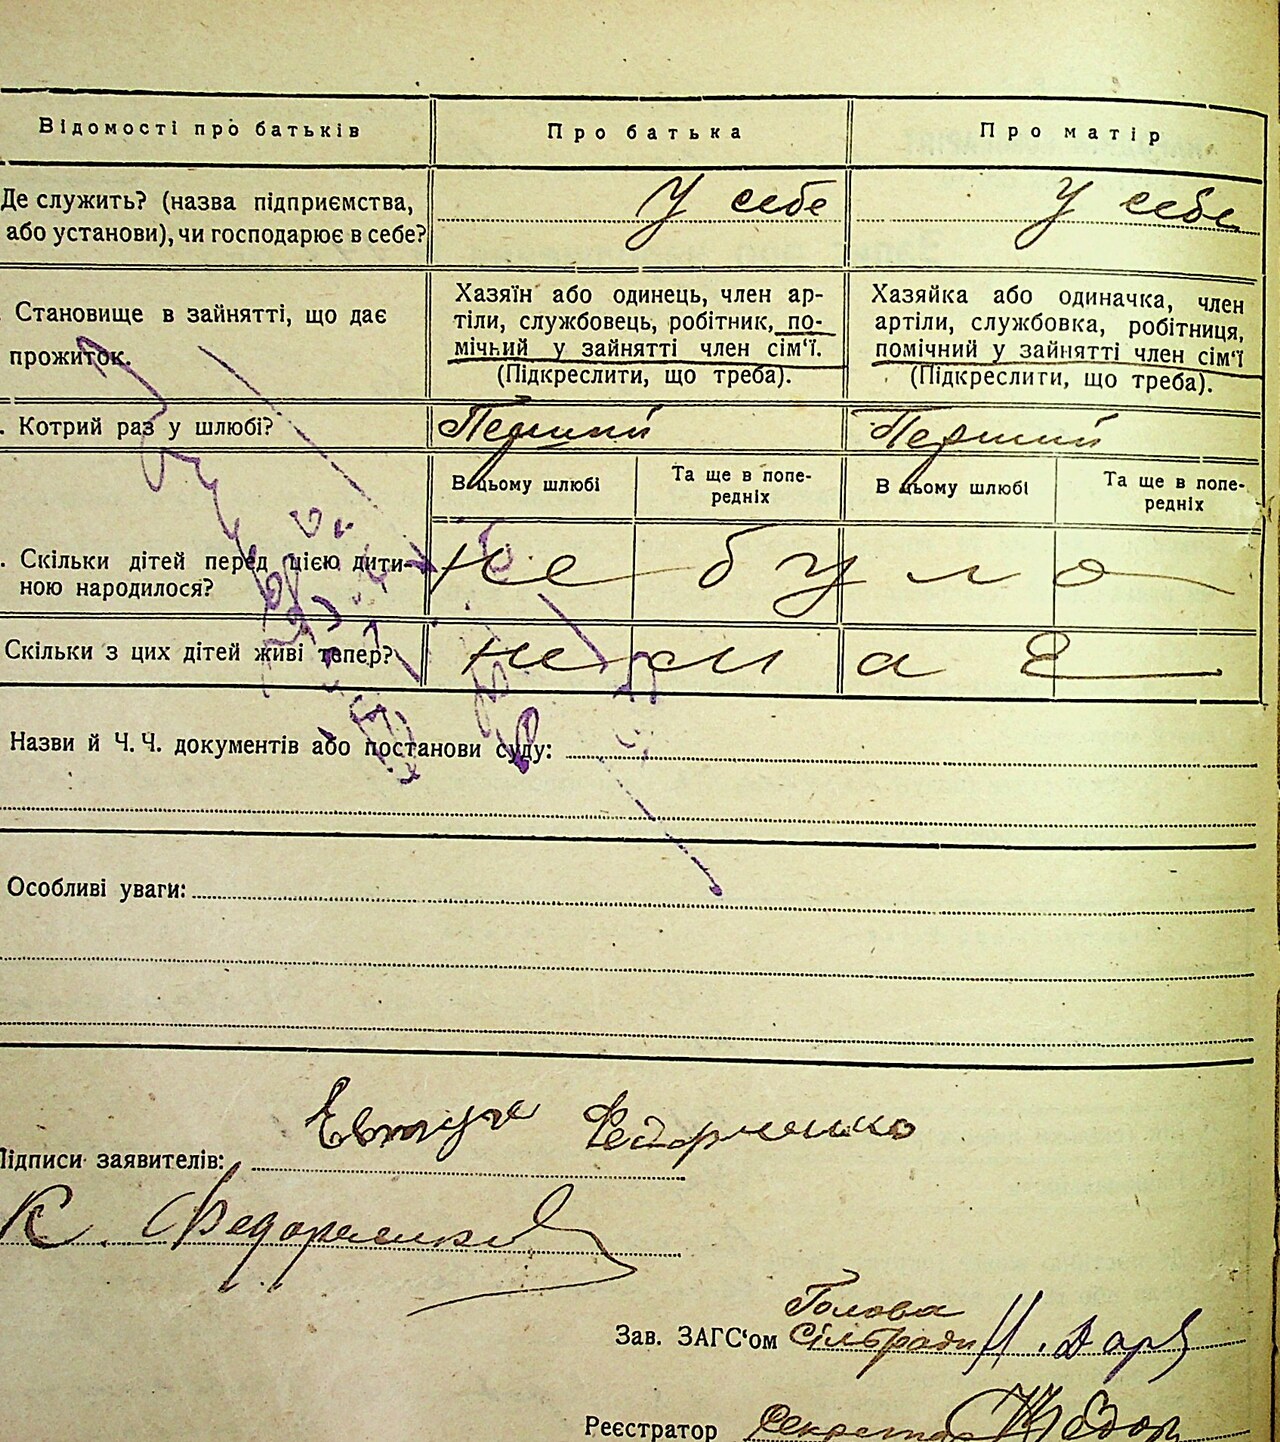 Відомості про батьків Про батька Про матір
Де служить? (назва підприємства, У себе У себе
або установи), чи господарює в себе?
Становище в зайнятті, що дає
прожиток.
Хазяїн або одинець, член ар-
тіли, службовець, робітник, по-
мічний у зайнятті член сім'ї.
(Підкреслити, що треба).
Хазяйка або одиначка, член
артіли, службовка, робітниця,
помічний у зайнятті член сім'ї
(Підкреслити, що треба).
. Котрий раз у шлюбі? Перший Перший
В цьому шлюбі
Та ще в попе-
редніх
В цьому шлюбі
Та ще в попе-
редніх
. Скільки дітей перед цією дити-
ною народилося?
не було
Скільки з цих дітей живі тепер? немає
Назви й Ч. Ч. документів або постанови суду:
Особливі уваги:
Федорченко
Підписи заявителів:
К. Федоренко
Голова
Зав. ЗАГС'ом Сільради
Реєстратор Секретар